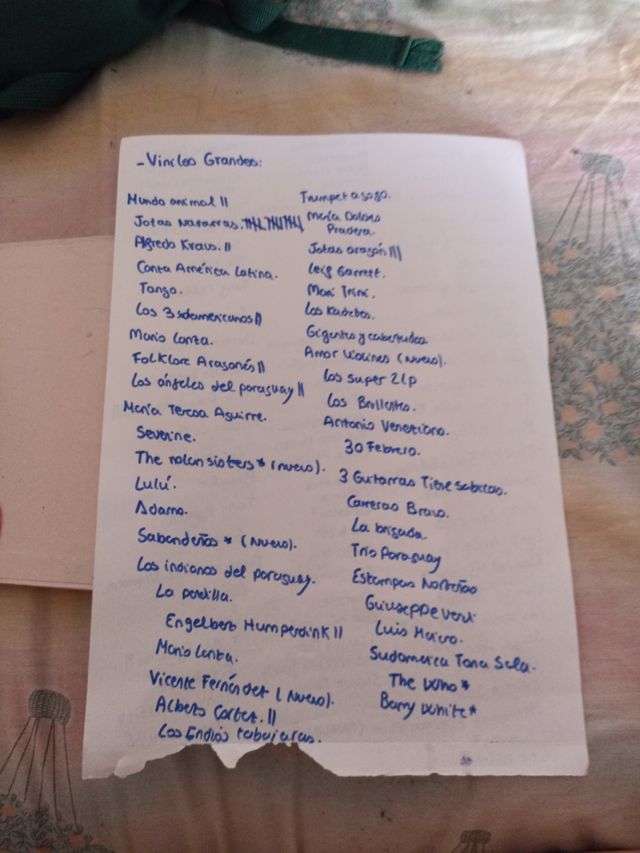 - Vinilos Grandes:
Mundo animal II
Jotas Navarras. IIII IIII IIII
Alfredo Kraus. II
Canta América Latina.
Tango.
Los 3 sdamericanos II
Mario Lanza.
Folklore Aragonés II
Los ángeles del paraguay II
María Teresa Aguirre.
Severine.
The nolan sisters * (nuevo).
Lulú.
Adamo.
Sabandeños * (Nuevo).
Los indianos del paraguay.
La pandilla.
Engelbert Humperdink II
Mario Lanza.
Vicente Fernández (Nuevo).
Alberto Cortez. II
Los Indios tabajaras.
Trumpet a gogo.
María Dolores
Pradera.
Jotas aragón III
Leig Garrett.
Mari Trini.
Los Kadetes.
Gigantes y cabezudos
Amor violines (nuevo).
Los super 2 Lp
Los Brillantes.
Antonio Veneziano.
30 Febrero.
3 Guitarras Tiene
Carreras Bravo.
La brigada.
Trío Paraguay
Estampas Norteñas
Guiuseppe verdi
Luis
Sudamerica Tana Sela.
The Who *
Barry White *